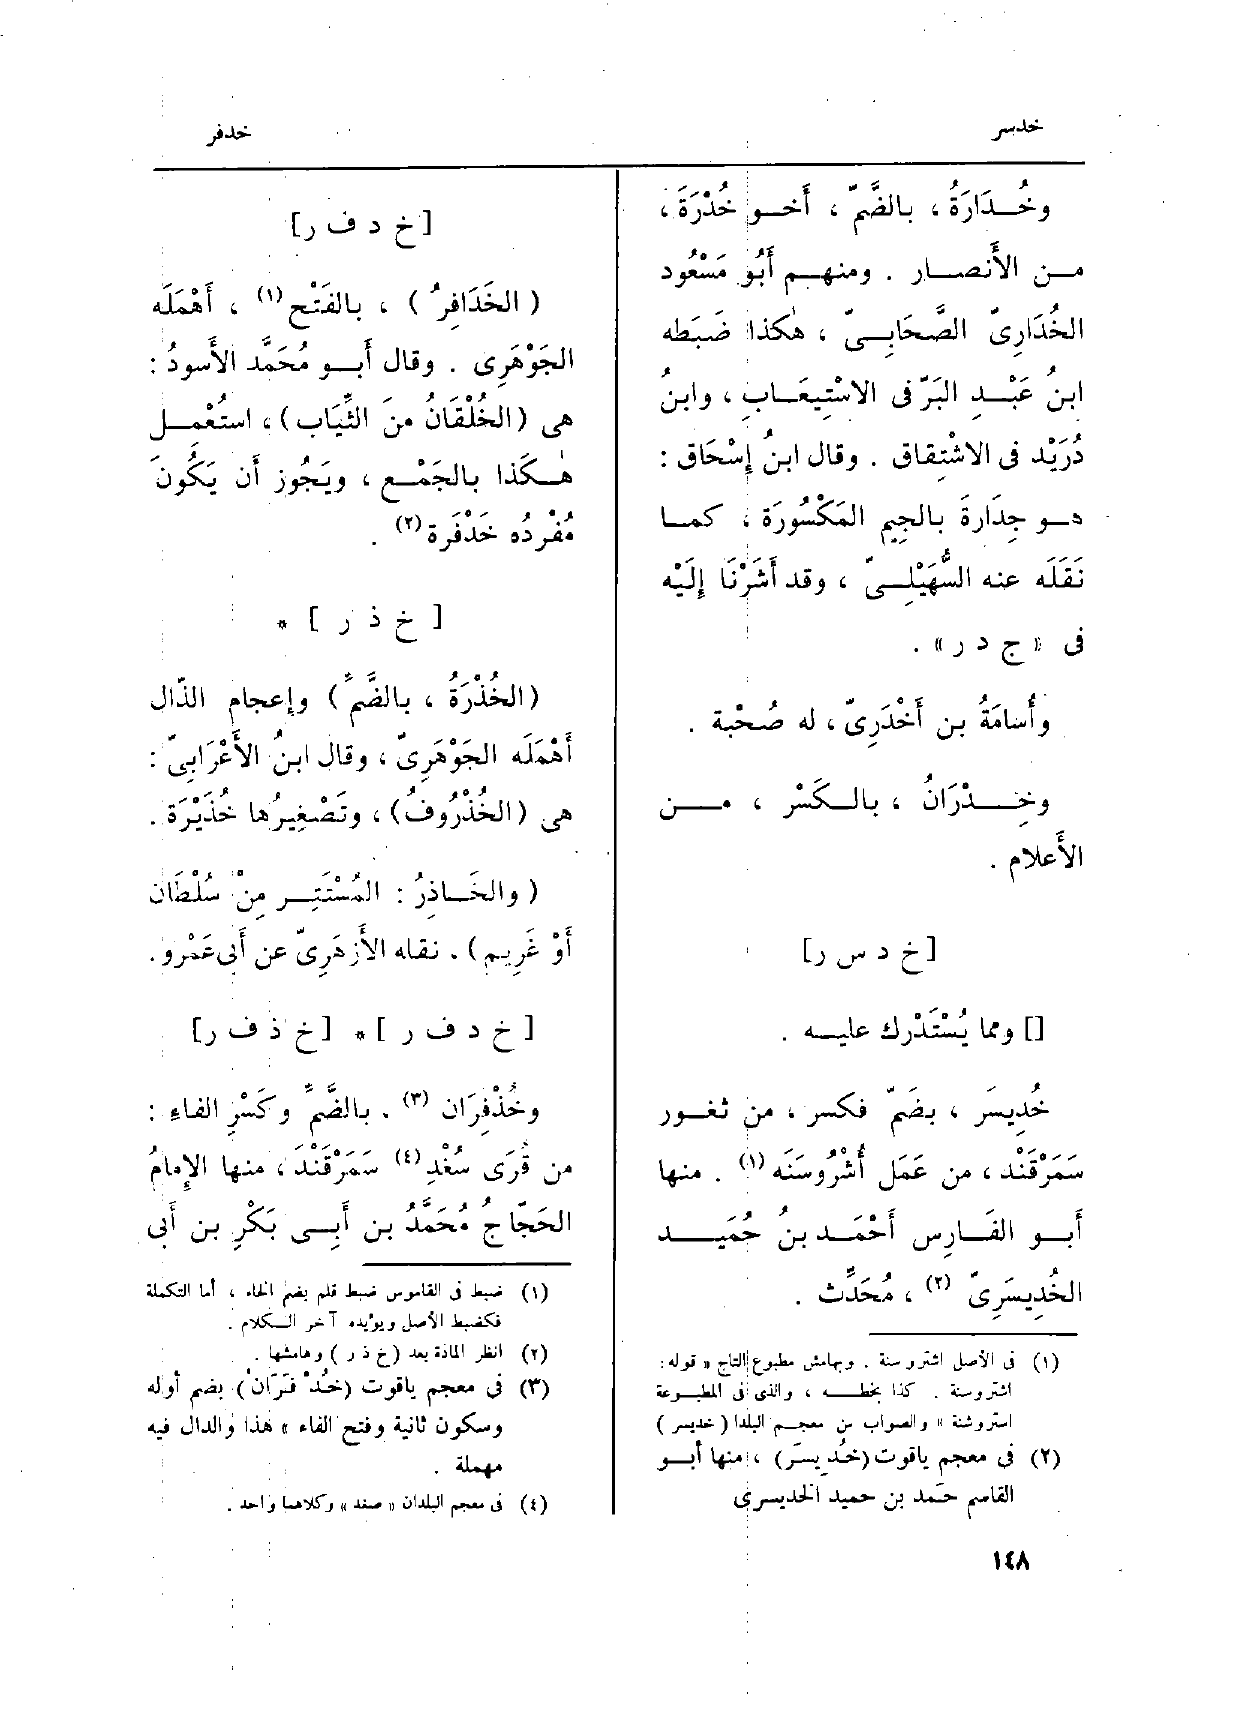 خدسر
خدفر
وخُــدَارَةُ ، بالضَّمّ ، أَخــو خُدْرَةَ ،
مــن الأَنصــار . ومنهــم أَبُو مَسْعُود
الخُدَارِىّ الصَّحَابِــىّ ، هٰكذا ضَبَطه
ابنُ عَبْــدِ البَرّ فى الاسْتِيعَابِ ، وابنُ
دُرَيْد فى الاشْتِقاق . وقال ابنُ إِسْحَاق :
هــو جِدَارةَ بالجِيمِ المَكْسُورَة ، كمــا
نَقَلَه عنه السُّهَيْلِــىّ ، وقد أَشَرْنَا إِلَيْه
فى « ج د ر » .
وأُسَامَةُ بن أَخْدَرِىّ ، له صُحْبة .
وخِــدْرَانُ ، بالــكَسْر ، مــن
الأَعلام .
[خ د س ر]
[] ومما يُسْتَدْرك عليــه .
خُدِيسَر ، بضَمّ فكسر ، من ثغــور
سَمَرْقَند ، من عَمَل أُشْرُوسَنَه (١) . منها
أَبــو الفَــارِس أَحْمَــد بنُ حُمَيــد
الخُدِيسَرِىّ (٢) ، مُحَدِّث .
(١) فى الأصل اشتروسنة . وبهامش مطبوع التاج « قوله :
اشتروسنة . كذا بخطــه ، والذى فى المطبــوعة
استروشنة » والصواب من معجــم البلدا ( خديسر )
(٢) فى معجم ياقوت (خُدِيسَر) ، منها أبــو
القاسم حَمَد بن حميد الخديسرى
[خ د ف ر]
( الخَدَافِرُ ) ، بالفَتْح (١) ، أَهْمَلَه
الجَوْهَرِى . وقال أَبــو مُحَمَّد الأَسودُ :
هى (الخُلْقَانُ مِنَ الثِّيَاب) ، استُعْمِــل
هٰــكَذا بالجَمْــع ، ويَجُوز أَن يَكُونَ
مُفْرَدُه خَدْفَرة (٢) .
[ خ ذ ر ] *
(الخُذْرَةُ ، بالضَّمِّ) وإِعجام الذّال
أَهْمَلَه الجَوْهَرِىّ ، وقال ابنُ الأَعْرَابِىّ :
هى (الخُذْرُوفُ) ، وتَصْغِيرُها خُذَيْرَة .
( والخَــاذِرُ : المُسْتَتِــر مِنْ سُلْطَان
أَوْ غَرِيم) . نقله الأَزهَرِىّ عن أَبى عَمْرو .
[ خ د ف ر ] * [خ ذ ف ر]
وخُذْفِرَان (٣) . بالضَّمِّ وكَسْرِ الفاءِ :
من قُرَى سُغْدِ (٤) سَمَرْقَنْدَ ، منها الإِمامُ
الحَجّاجُ مُحَمَّدُ بن أَبِــى بَكْرِ بن أَبى
(١) ضبط فى القاموس ضبط قلم بضم الخاء ، أما التكملة
فكضبط الأصل ويؤيده آخر الــكلام .
(٢) انظر المادة بعد (خ ذ ر ) وهامشها .
(٣) فى معجم ياقوت (خُدْ فَرَانْ) بضم أوله
وسكون ثانية وفتح الفاء » هذا والدال فيه
مهملة .
(٤) فى معجم البلدان « صغد » وكلاهما واحد .
١٤٨